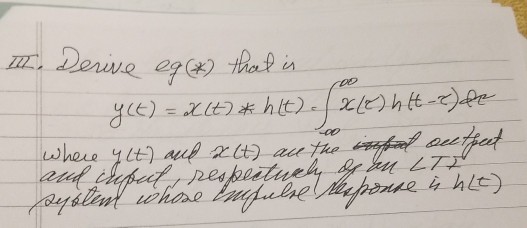 III. Derive eq(*) that is
y(t) = x(t) * h(t) = ∫_{-∞}^{∞} x(τ) h(t-τ) dτ
where y(t) and x(t) are the output
and input, respectively of an LTI
system whose impulse response is h(t)